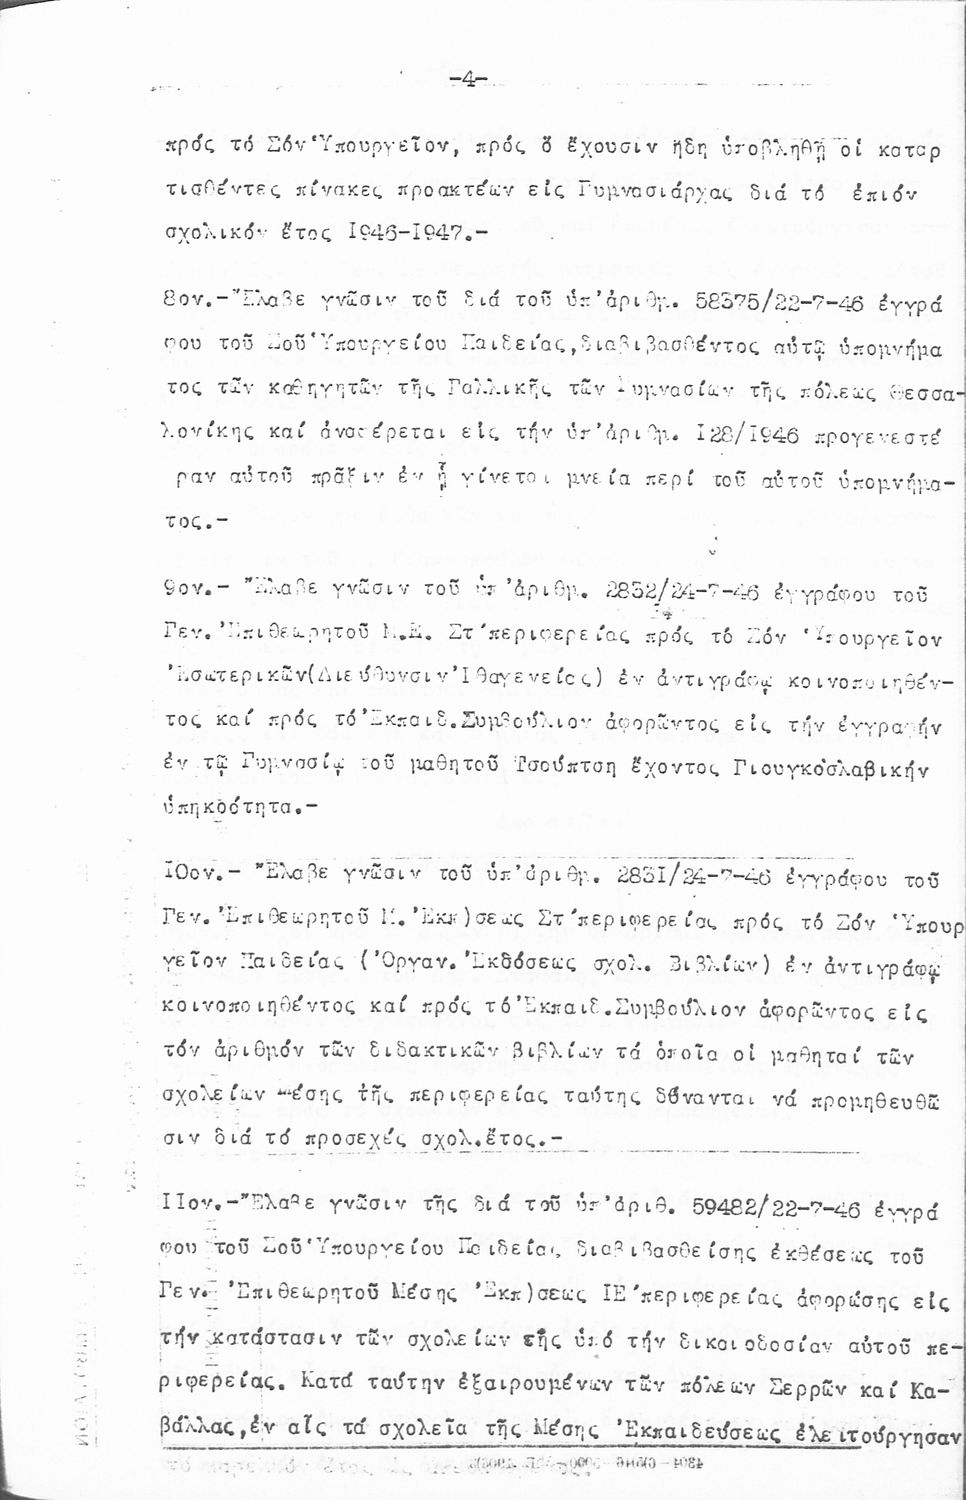 -4-
πρός τό Σόν Ὑπουργεῖον, πρός ὅ ἔχουσιν ἤδη ὑποβληθῇ οἱ καταρ
τισθέντες πίνακες προακτέων εἰς Γυμνασιάρχας διά τό ἐπιόν
σχολικόν ἔτος Ι946-Ι947.-
8ον.-Ἔλαβε γνῶσιν τοῦ διά τοῦ ὑπ'ἀριθμ. 58375/22-7-46 ἐγγρά
φου τοῦ Σοῦ Ὑπουργείου Παιδείας,διαβιβασθέντος αὐτῷ ὑπομνήμα
τος τῶν καθηγητῶν τῆς Γαλλικῆς τῶν Γυμνασίων τῆς πόλεως Θεσσα-
λονίκης καί ἀναφέρεται εἰς τήν ὑπ'ἀριθμ. Ι28/Ι946 προγενεστέ
ραν αὐτοῦ πρᾶξιν ἐν ᾗ γίνεται μνεία περί τοῦ αὐτοῦ ὑπομνήμα-
τος.-
9ον.- Ἔλαβε γνῶσιν τοῦ ὑπ'ἀριθμ. 2832/24-7-46 ἐγγράφου τοῦ
Γεν.Ἐπιθεωρητοῦ Μ.Ε. ΣΤ'περιφερείας πρός τό Σόν Ὑπουργεῖον
Ἐσωτερικῶν(Διεύθυνσιν Ἰθαγενείας) ἐν ἀντιγράφῳ κοινοποιηθέν-
τος καί πρός τό Ἐκπαιδ.Συμβούλιον ἀφορῶντος εἰς τήν ἐγγραφήν
ἐν τῷ Γυμνασίῳ τοῦ μαθητοῦ Τσούπτση ἔχοντος Γιουγκοσλαβικήν
ὑπηκοότητα.-
Ι0ον.- Ἔλαβε γνῶσιν τοῦ ὑπ'ἀριθμ. 283Ι/24-7-46 ἐγγράφου τοῦ
Γεν.Ἐπιθεωρητοῦ Μ.Ἐκπ)σεως ΣΤ'περιφερείας πρός τό Σόν Ὑπουρ
γεῖον Παιδείας (Ὀργαν.Ἐκδόσεως σχολ. Βιβλίων) ἐν ἀντιγράφῳ
κοινοποιηθέντος καί πρός τό Ἐκπαιδ.Συμβούλιον ἀφορῶντος εἰς
τόν ἀριθμόν τῶν διδακτικῶν βιβλίων τά ὁποῖα οἱ μαθηταί τῶν
σχολείων Μέσης τῆς περιφερείας ταύτης δύνανται νά προμηθευθῶ
σιν διά τό προσεχές σχολ.ἔτος.-
ΙΙον.-Ἔλαβε γνῶσιν τῆς διά τοῦ ὑπ'ἀριθ. 59482/22-7-46 ἐγγρά
φου τοῦ Σοῦ Ὑπουργείου Παιδείας διαβιβασθείσης ἐκθέσεως τοῦ
Γεν. Ἐπιθεωρητοῦ Μέσης Ἐκπ)σεως ΙΕ'περιφερείας ἀφορώσης εἰς
τήν κατάστασιν τῶν σχολείων τῆς ὑπό τήν δικαιοδοσίαν αὐτοῦ πε-
ριφερείας. Κατά ταύτην ἐξαιρουμένων τῶν πόλεων Σερρῶν καί Κα-
βάλλας,ἐν αἷς τά σχολεῖα τῆς Μέσης Ἐκπαιδεύσεως ἐλειτούργησαν